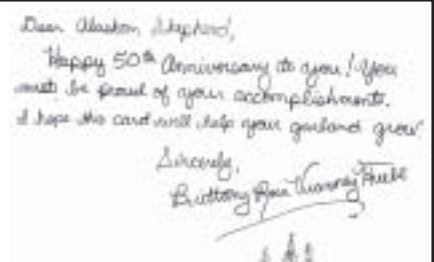 Dear Alaskan Shepherd,
Happy 50th Anniversary to you! You
must be proud of your accomplishments.
I hope this card will help your garland grow.
Sincerely,
Brittany Rose